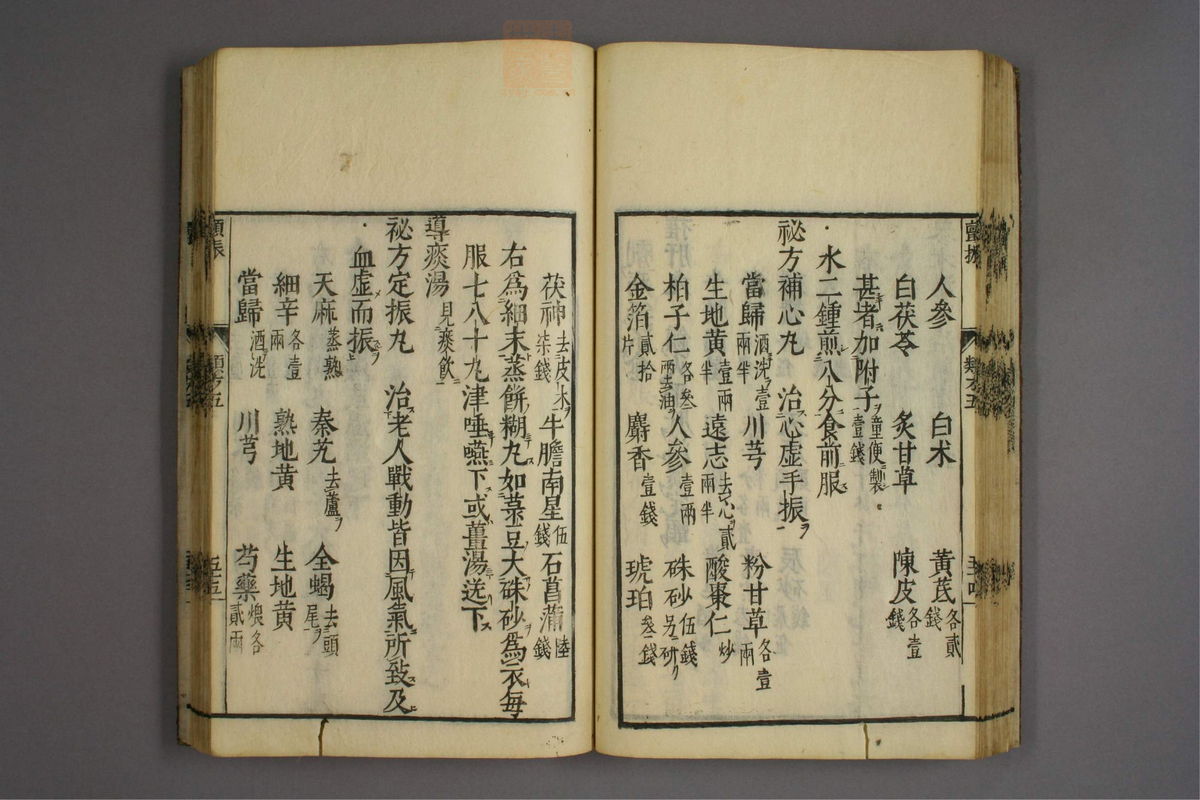 人參　白术　黃芪各貳錢
白茯苓　炙甘草　陳皮各壹錢
甚者加附子童便製壹錢
水二鍾煎八分食前服
祕方補心丸　治心虛手振
當歸酒洗壹兩半　川芎　粉甘草各壹兩
生地黃壹兩半　遠志去心貳兩半　酸棗仁炒
柏子仁各叁兩去油　人參壹兩　硃砂伍錢另研
金箔貳拾片　麝香壹錢　琥珀叁錢
茯神去皮木柒錢　牛膽南星伍錢　石菖蒲陸錢
右爲細末蒸餅糊丸如菉豆大硃砂爲衣每
服七八十丸津唾嚥下或薑湯送下
導痰湯見痰飲
祕方定振丸　治老人戰動皆因風氣所致及
血虛而振
天麻蒸熟　秦艽去蘆　全蝎去頭尾
細辛各壹兩　熟地黃　生地黃
當歸酒洗　川芎　芍藥煨各貳兩